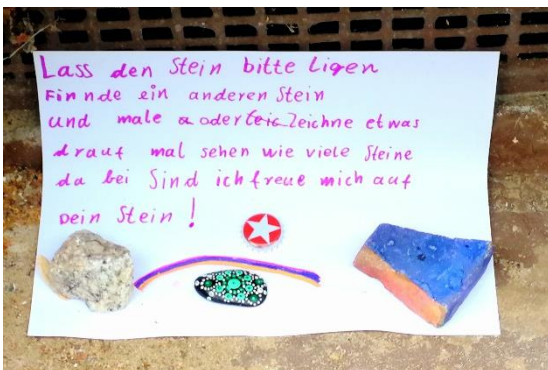 Lass den Stein bitte Ligen
Finnde ein anderen Stein
und male oder Zeichne etwas
drauf mal sehen wie viele Steine
da bei Sind ich freue mich auf
Dein Stein!